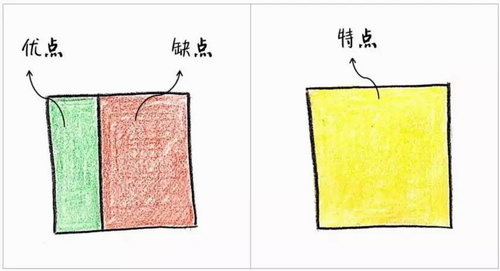 优点
缺点
特点